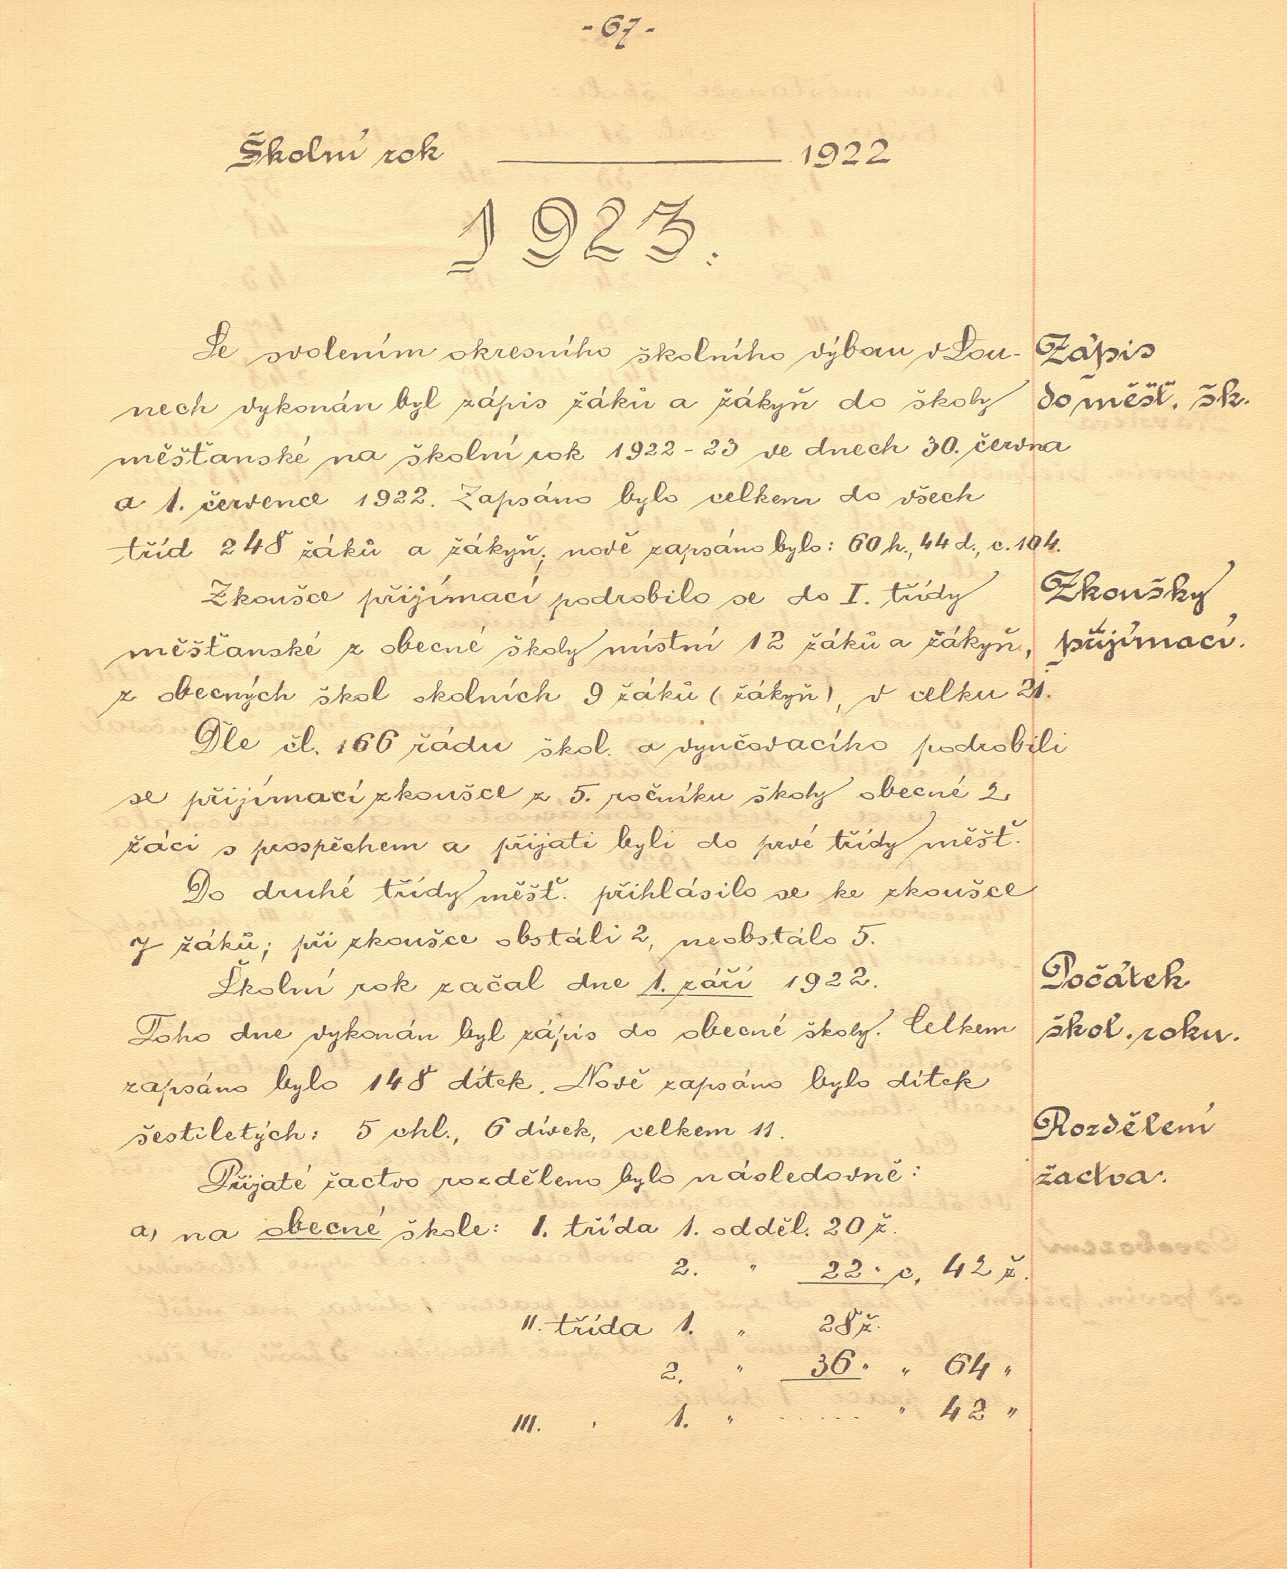 - 67 -
Školní rok ——— 1922
1923.
Se svolením okresního školního výboru v Lou- Zápis
nech vykonán byl zápis žáků a žákyň do školy do měšť. šk.
měšťanské na školní rok 1922 - 23 ve dnech 30. června
a 1. července 1922. Zapsáno bylo celkem do všech
tříd 248 žáků a žákyň; nově zapsáno bylo: 60 h., 44 d., c. 104.
Zkoušce přijímací podrobilo se do I. třídy Zkoušky
měšťanské z obecné školy místní 12 žáků a žákyň, přijímací.
z obecných škol okolních 9 žáků (žákyň), v celku 21.
Dle čl. 166 řádu škol. a vyučovacího podrobili
se přijímací zkoušce z 5. ročníku školy obecné 2
žáci s prospěchem a přijati byli do prvé třídy měšť.
Do druhé třídy měšť. přihlásilo se ke zkoušce
7 žáků; při zkoušce obstáli 2, neobstálo 5.
Školní rok začal dne 1. září 1922. Počátek
Toho dne vykonán byl zápis do obecné školy. Celkem škol. roku.
zapsáno bylo 148 dítek. Nově zapsáno bylo dítek
šestiletých: 5 chl., 6 dívek, celkem 11. Rozdělení
Přijaté žactvo rozděleno bylo následovně: žactva.
a) na obecné škole: I. třída 1. odděl. 20 ž.
2. " 22 " c. 42 ž.
II. třída 1. " 28 ž.
2. " 36 " " 64 "
III. " 1. " ..... " 42 "